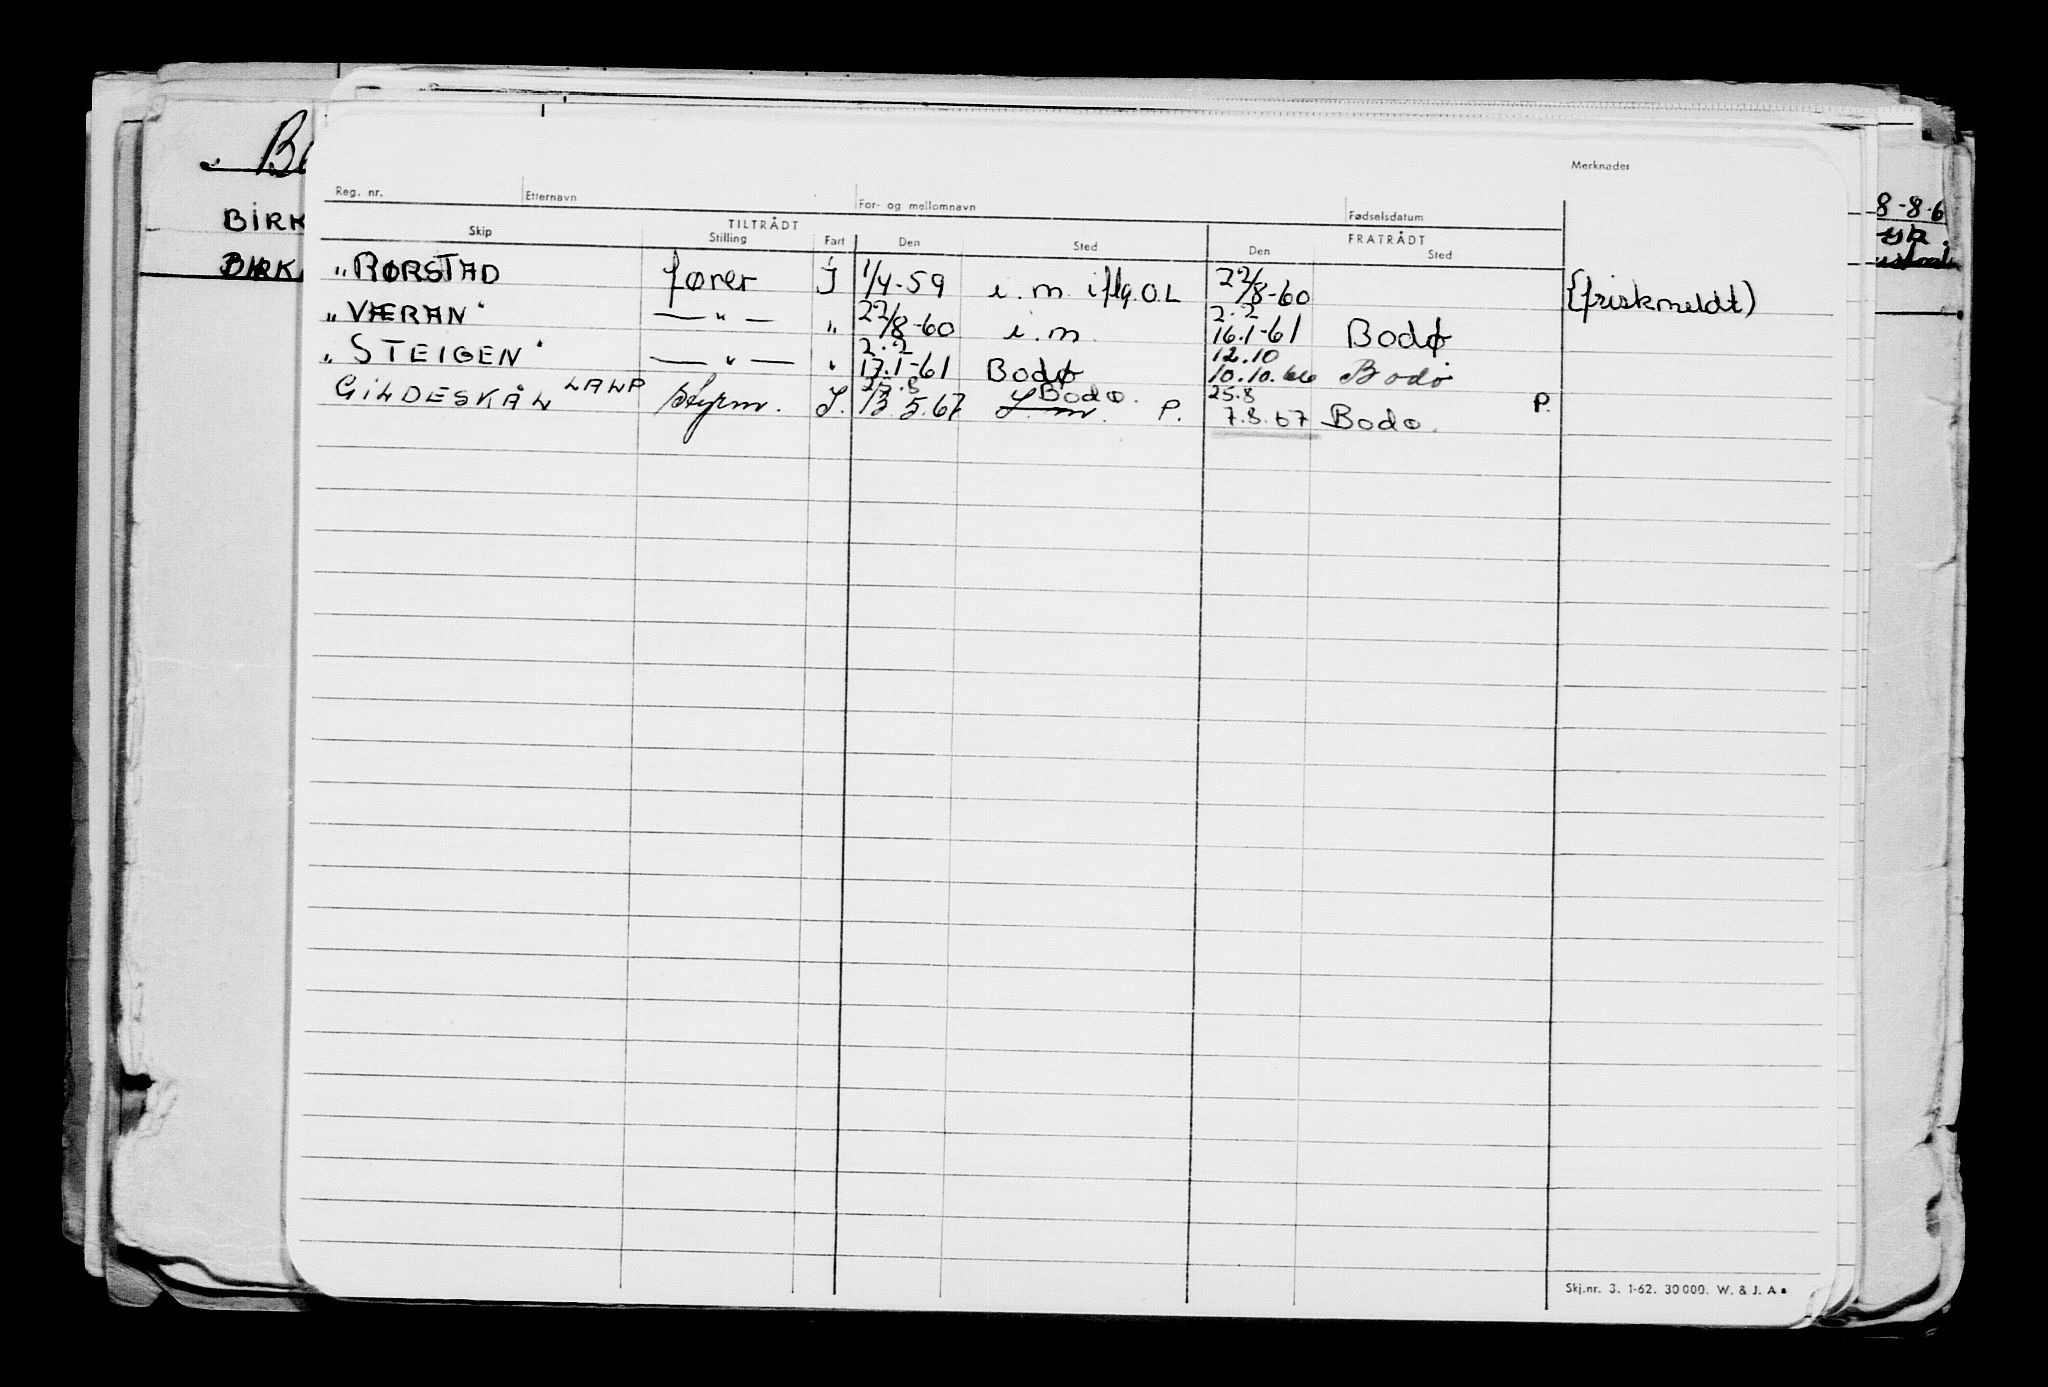 Merknader
Reg. nr. Etternavn For- og mellomnavn Fødselsdatum
TILTRÅDT FRATRÅDT
Skip Stilling Fart Den Sted Den Sted
„ RØRSTAD fører I 1/4-59 i.m. iflg. O.L 22/8-60 (friskmeldt)
„ VÆRAN " — " — „ 22/8-60 i.m. 2.2 16.1-61 Bodø
„ STEIGEN " — " — " 2.2 17.1-61 Bodø 12.10 10.10.66 Bodø
GILDESKÅL LALP Styrm. I. 25.8 13.5.67 I.m. Bodø. P. 25.8 7.8.67 Bodø. P.
BIRK
BIRK
8-8-6
Skj.nr. 3. 1-62. 30 000. W. & J. A